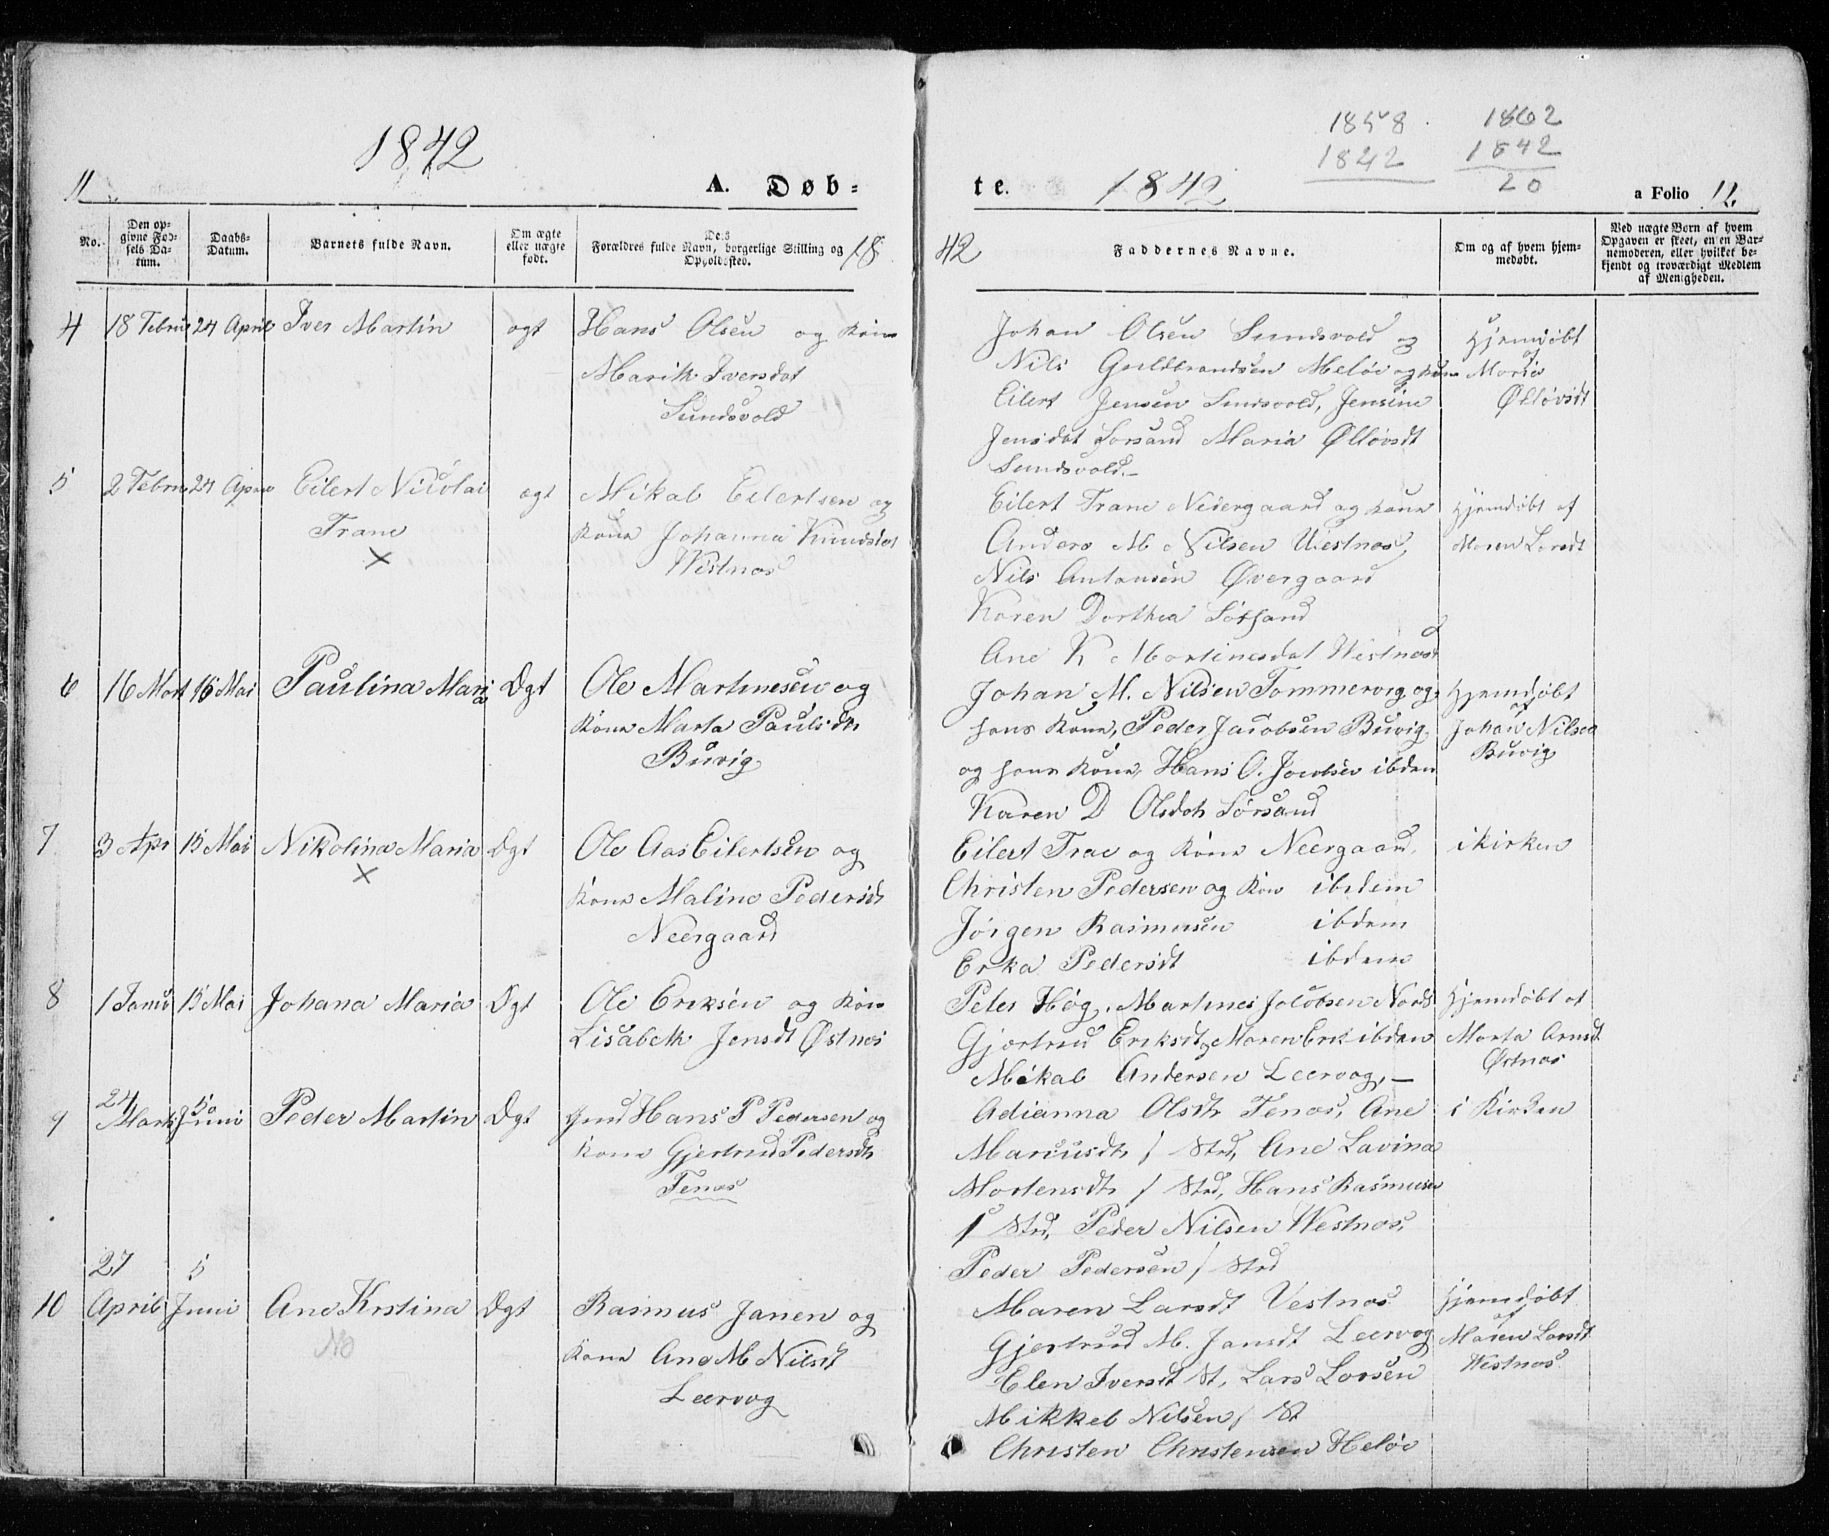 1842
11
A. Døb-
No.
Den opgivne Fødsels Datum.
Daabs-Datum.
Barnets fulde Navn.
Om ægte eller uægte født.
Des Forældres fulde Navn, borgerlige Stilling og Opholdssted.
18
4 18 Februar 24 April Iver Martin ægt Hans Olsen og Kone
Marik Iversdat
Sundsvold
5 2 Februar 24 April Eilert Nicolai ægt Mikal Eilertsen og
Trane Kone Johanna Knudsdat
X Westnæs
6 16 Mart 16 Mai Paulina Maria Ægt Ole Martinesen og
Kone Marta Paulsdtr
Buvig
7 3 Apr 15 Mai Nikolina Maria Ægt Ole Aas Eilertsen og
X Kone Maline Pedersdt
Neergaard
8 1 Janu 15 Mai Johana Maria Ægt Ole Eriksen og Kone
Lisabeth Jensdt Østnes
24 5
9 Mart Juni Peder Martin Ægt Gmd Hans P Pedersen og
Kone Gjertrud Pedersdtr
Tenæs
27 5
10 April Juni Ane Kristina Ægt Rasmus Jansen og
No Kone Ane M Nilsdt
Leervog
1858 1862
1842 1842
20
te. 1842
a Folio 12
42
Faddernes Navne.
Om og af hvem hjemmedøbt.
Ved uægte Børn af hvem Opgaven er skeet, enten Barnemoderen, eller hvilket bekjendt og troværdigt Medlem af Menigheden.
Johan Olsen Sundsvold og Hjemdøbt
Nils Guldbrandsen Meløe og Kone af Maria
Eilert Jensen Sundsvold, Jensine Ølløvsdt
Jensdat Sørsand Maria Ølløvsdt
Sundsvold.
Eilert Trane Nedergaard og Kone Hjemdøbt af
Anders M. Nilsen Westnes, Maren Larsdt
Nils Antonsen Øvergaard
Karen Dorthea Sørsand
Ane K Martinesdat Westnes
Johan M. Nilsen Tommervig og Hjemdøbt
hans Kone, Peder Jacobsen Buvig af Johan Nilsen
og hans Kone, Hans O. Jacobsen ibdem Buvig
Karen D Olsdatr Sørsand
Eilert Trae og Kone Neergaard, i kirken
Christen Pedersen og Kone ibidem
Jørgen Rasmusen ibdem
Erka Pedersdt ibdem
Peter Høg, Martines Jacobsen Nords Hjemdøbt af
Gjertrud Eriksdt, Maren Erik ibdem Marta Arnsdt
Mikal Andersen Leervog,— Østnes
Adianna Olsdtr Tenæs, Ane i Kirken
Marcusdtr / Std, Ane Lavina
Mortensdtr / Std, Hans Rasmusen
/ Std, Peder Nilsen Westnæs
Peder Pedersen / Std
Maren Larsdt Vestnæs Hjemdøbt
Gjertrud M. Jansdt Leervog af Maren Larsdt
Elen Iversdt St, Lars Larsen Westnæs
Mikkel Nilsen / St
Christen Christensen Heløe